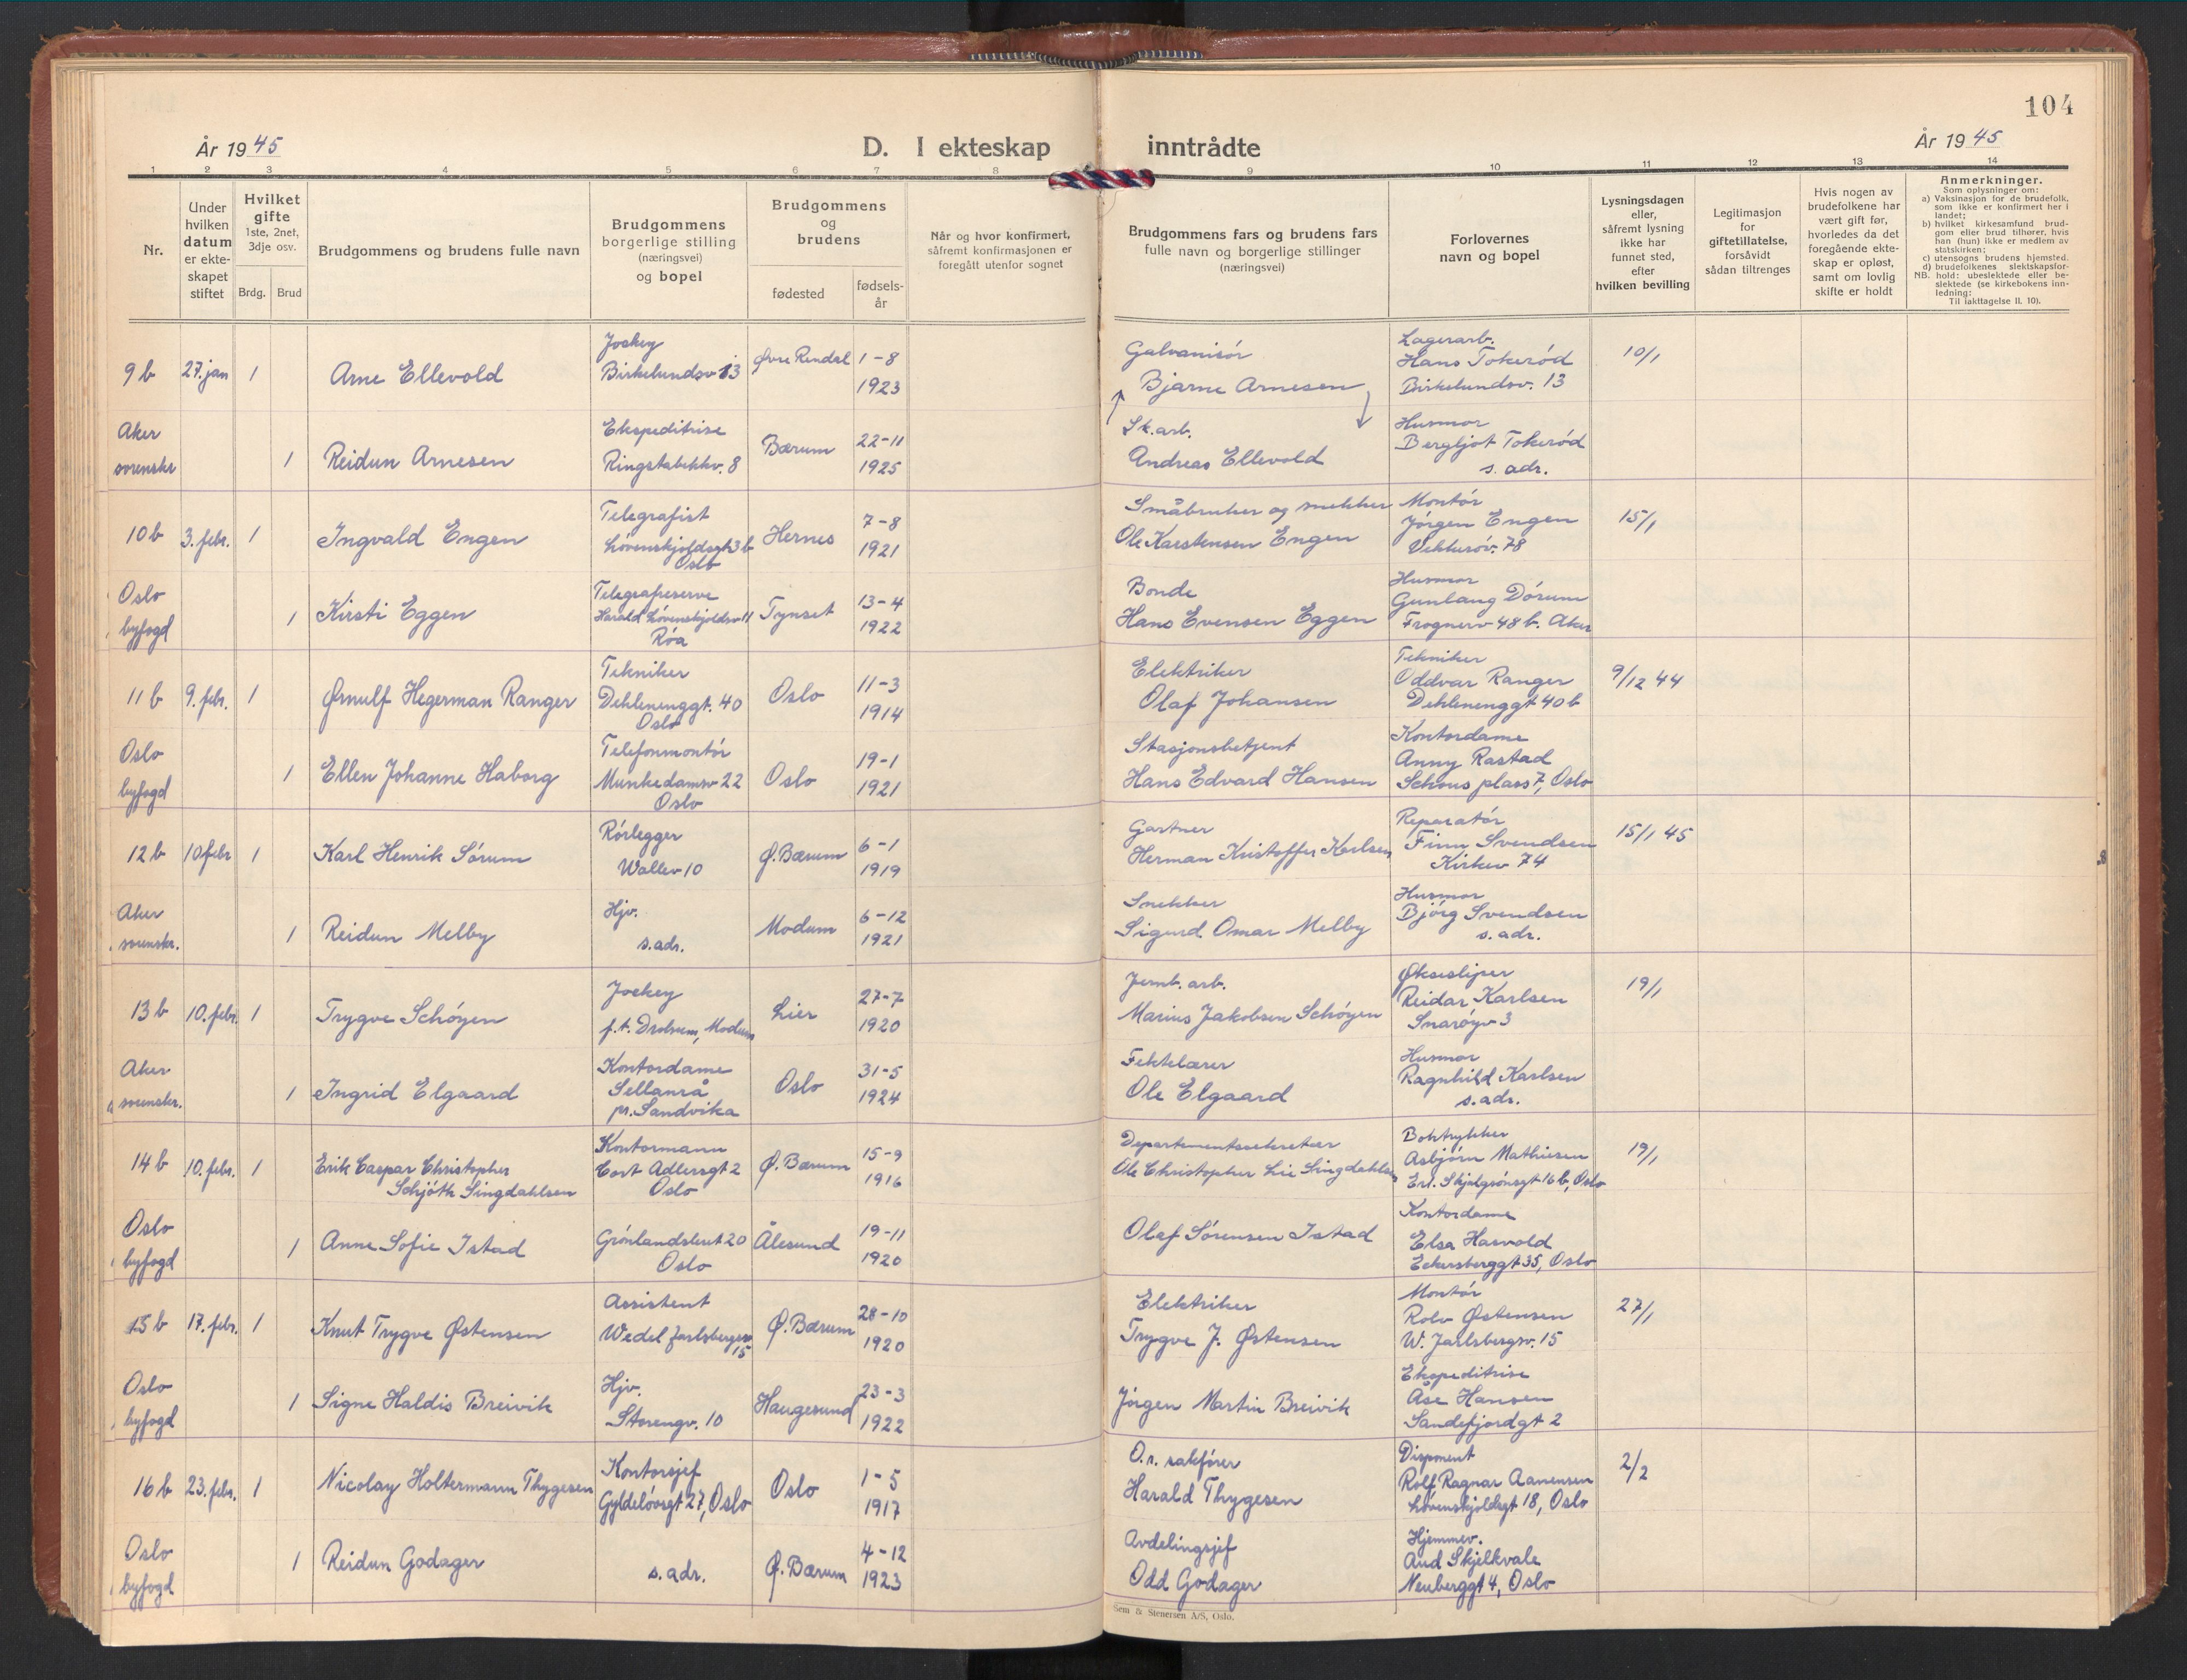 104
År 1945
D. I ekteskap inntrådte
År 1945
1 2 3 4 5 6 7 8 9 10 11 12 13 14
Nr.
Under
hvilken
datum
er ekte-
skapet
stiftet
Hvilket
gifte
1ste, 2net,
3dje osv.
Brdg. Brud
Brudgommens og brudens fulle navn
Brudgommens
borgerlige stilling
(næringsvei)
og bopel
Brudgommens
og
brudens
fødested
fødsels-
år
Når og hvor konfirmert,
såfremt konfirmasjonen er
foregått utenfor sognet
Brudgommens fars og brudens fars
fulle navn og borgerlige stillinger
(næringsvei)
Forlovernes
navn og bopel
Lysningsdagen
eller,
såfremt lysning
ikke har
funnet sted,
efter
hvilken bevilling
Legitimasjon
for
giftetillatelse,
forsåvidt
sådan tiltrenges
Hvis nogen av
brudefolkene har
vært gift før,
hvorledes da det
foregående ekte-
skap er opløst,
samt om lovlig
skifte er holdt
Anmerkninger.
Som oplysninger om:
a) Vaksinasjon for de brudefolk,
som ikke er konfirmert her i
landet;
b) hvilket kirkesamfund brud-
gom eller brud tilhører, hvis
han (hun) ikke er medlem av
statskirken;
c) utensogns brudens hjemsted.
d) brudefolkenes slektskapsfor-
NB. hold: ubeslektede eller be-
slektede (se kirkebokens inn-
ledning:
Til iakttagelse II. 10).
9 b 27. jan 1 Arne Ellevold
Jockey
Birkelundsv 13
Øvre Rendal
1-8
1923
Galvanisör
Bjarne Arnesen
Lagerarb.
Hans Tokeröd
Birkelundsv. 13
10/1
Aker
sorenskr
1 Reidun Arnesen
Ekspeditrise
Ringstabekkv. 8
Bærum
22-11
1925
Sk.arb.
Andreas Ellevold
Husmor
Bergljot Tokeröd
s. adr.
10 b 3. febr. 1 Ingvald Engen
Telegrafist
Lövenskjoldsgt 3 b
Oslo
Hernes
7-8
1921
Småbruker og snekker
Ole Karstensen Engen
Montör
Jörgen Engen
Vekkeröv. 78
15/1
Oslo
byfogd
1 Kirsti Eggen
Telegrafreserve
Harald Lövenskjoldsv 11
Röa
Tynset
13-4
1922
Bonde
Hans Evensen Eggen
Husmor
Gunlaug Dörum
Frognerv 48 b. Aker
11 b 9. febr. 1 Ørnulf Hegerman Ranger
Tekniker
Dehlenenggt. 40
Oslo
Oslo
11-3
1914
Elektriker
Olaf Johansen
Tekniker
Oddvar Ranger
Dehlenenggt 40 b
9/12 44
Oslo
byfogd
1 Ellen Johanne Haborg
Telefonmontör
Munkedamsv 22
Oslo
Oslo
19-1
1921
Stasjonsbetjent
Hans Edvard Hansen
Kontordame
Anny Rastad
Schous plass 7, Oslo
12 b 10 febr 1 Karl Henrik Sörum
Rörlegger
Wallev 10
Ø. Bærum
6-1
1919
Gartner
Herman Kristoffer Karlsen
Reparatör
Finn Svendsen
Kirkev 74
15/1 45
Aker
sorenskr.
1 Reidun Melby
Hjv.
s. adr.
Modum
6-12
1921
Snekker
Sigurd Omar Melby
Husmor
Björg Svendsen
s. adr.
13 b 10. febr. 1 Trygve Schöyen
Jockey
p.t. Drolsum, Modum
Lier
27-7
1920
Jernb. arb.
Marius Jakobsen Schöyen
Øksesliper
Reidar Karlsen
Snaröyv 3
19/1
Aker
sorenskr.
1 Ingrid Elgaard
Kontordame
Sellanrå
pr. Sandvika
Oslo
31-5
1924
Fektelærer
Ole Elgaard
Husmor
Ragnhild Karlsen
s. adr.
14 b 10. febr. 1 Erik Caspar Christopher
Schjöth Singdahlsen
Kontormann
Cort Adlersgt 2
Oslo
Ø. Bærum
15-9
1916
Departementssekretær
Ole Christopher Lie Singdahlsen
Boktrykker
Asbjörn Mathiesen
Erl. Skjalgsönsgt 16 b, Oslo
19/1
Oslo
byfogd
1 Anne Sofie Istad
Grönlandsleret 20
Oslo
Ålesund
19-11
1920
Olaf Sörensen Istad
Kontordame
Elsa Harvold
Eckersberggt 35, Oslo
15 b 17. febr. 1 Knut Trygve Østensen
Assistent
Wedel Jarlsbergsv
15
Ø. Bærum
28-10
1920
Elektriker
Trygve J. Østensen
Montör
Rolv Østensen
W. Jarlsbergsv. 15
27/1
Oslo
byfogd
1 Signe Haldis Breivik
Hjv.
Storengv. 10
Haugesund
23-3
1922
Jörgen Martin Breivik
Ekspeditrise
Åse Hansen
Sandefjordgt 2
16 b 23. febr. 1 Nicolay Holtermann Thygesen
Kontorsjef
Gyldelövsgt 27, Oslo
Oslo
1-5
1917
O.r. sakförer
Harald Thygesen
Disponent
Rolf Ragnar Aanensen
Lövenskjoldsgt 18, Oslo
2/2
Oslo
byfogd
1 Reidun Godager
s. adr.
Ø. Bærum
4-12
1923
Avdelingsjef
Odd Godager
Hjemmev.
Aud Skjelkvale
Neuberggt 4, Oslo
Sem & Stenersen A/S, Oslo.